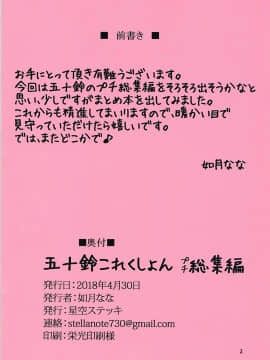 ■ 前書き ■
お手にとって頂き有難うございます。
今回は五十鈴のプチ総集編をそろそろ出そうかなと
思い、少しですがまとめ本を出してみました。
これからも精進してまいりますので、暖かい目で
見守っていただけたら嬉しいです。
では、またどこかで♪
如月なな
■奥付■
五十鈴これくしょん プチ総集編
発行日：2018年4月30日
発行者：如月なな
発行：星空ステッキ
連絡：stellanote730@gmail.com
印刷：栄光印刷様
2